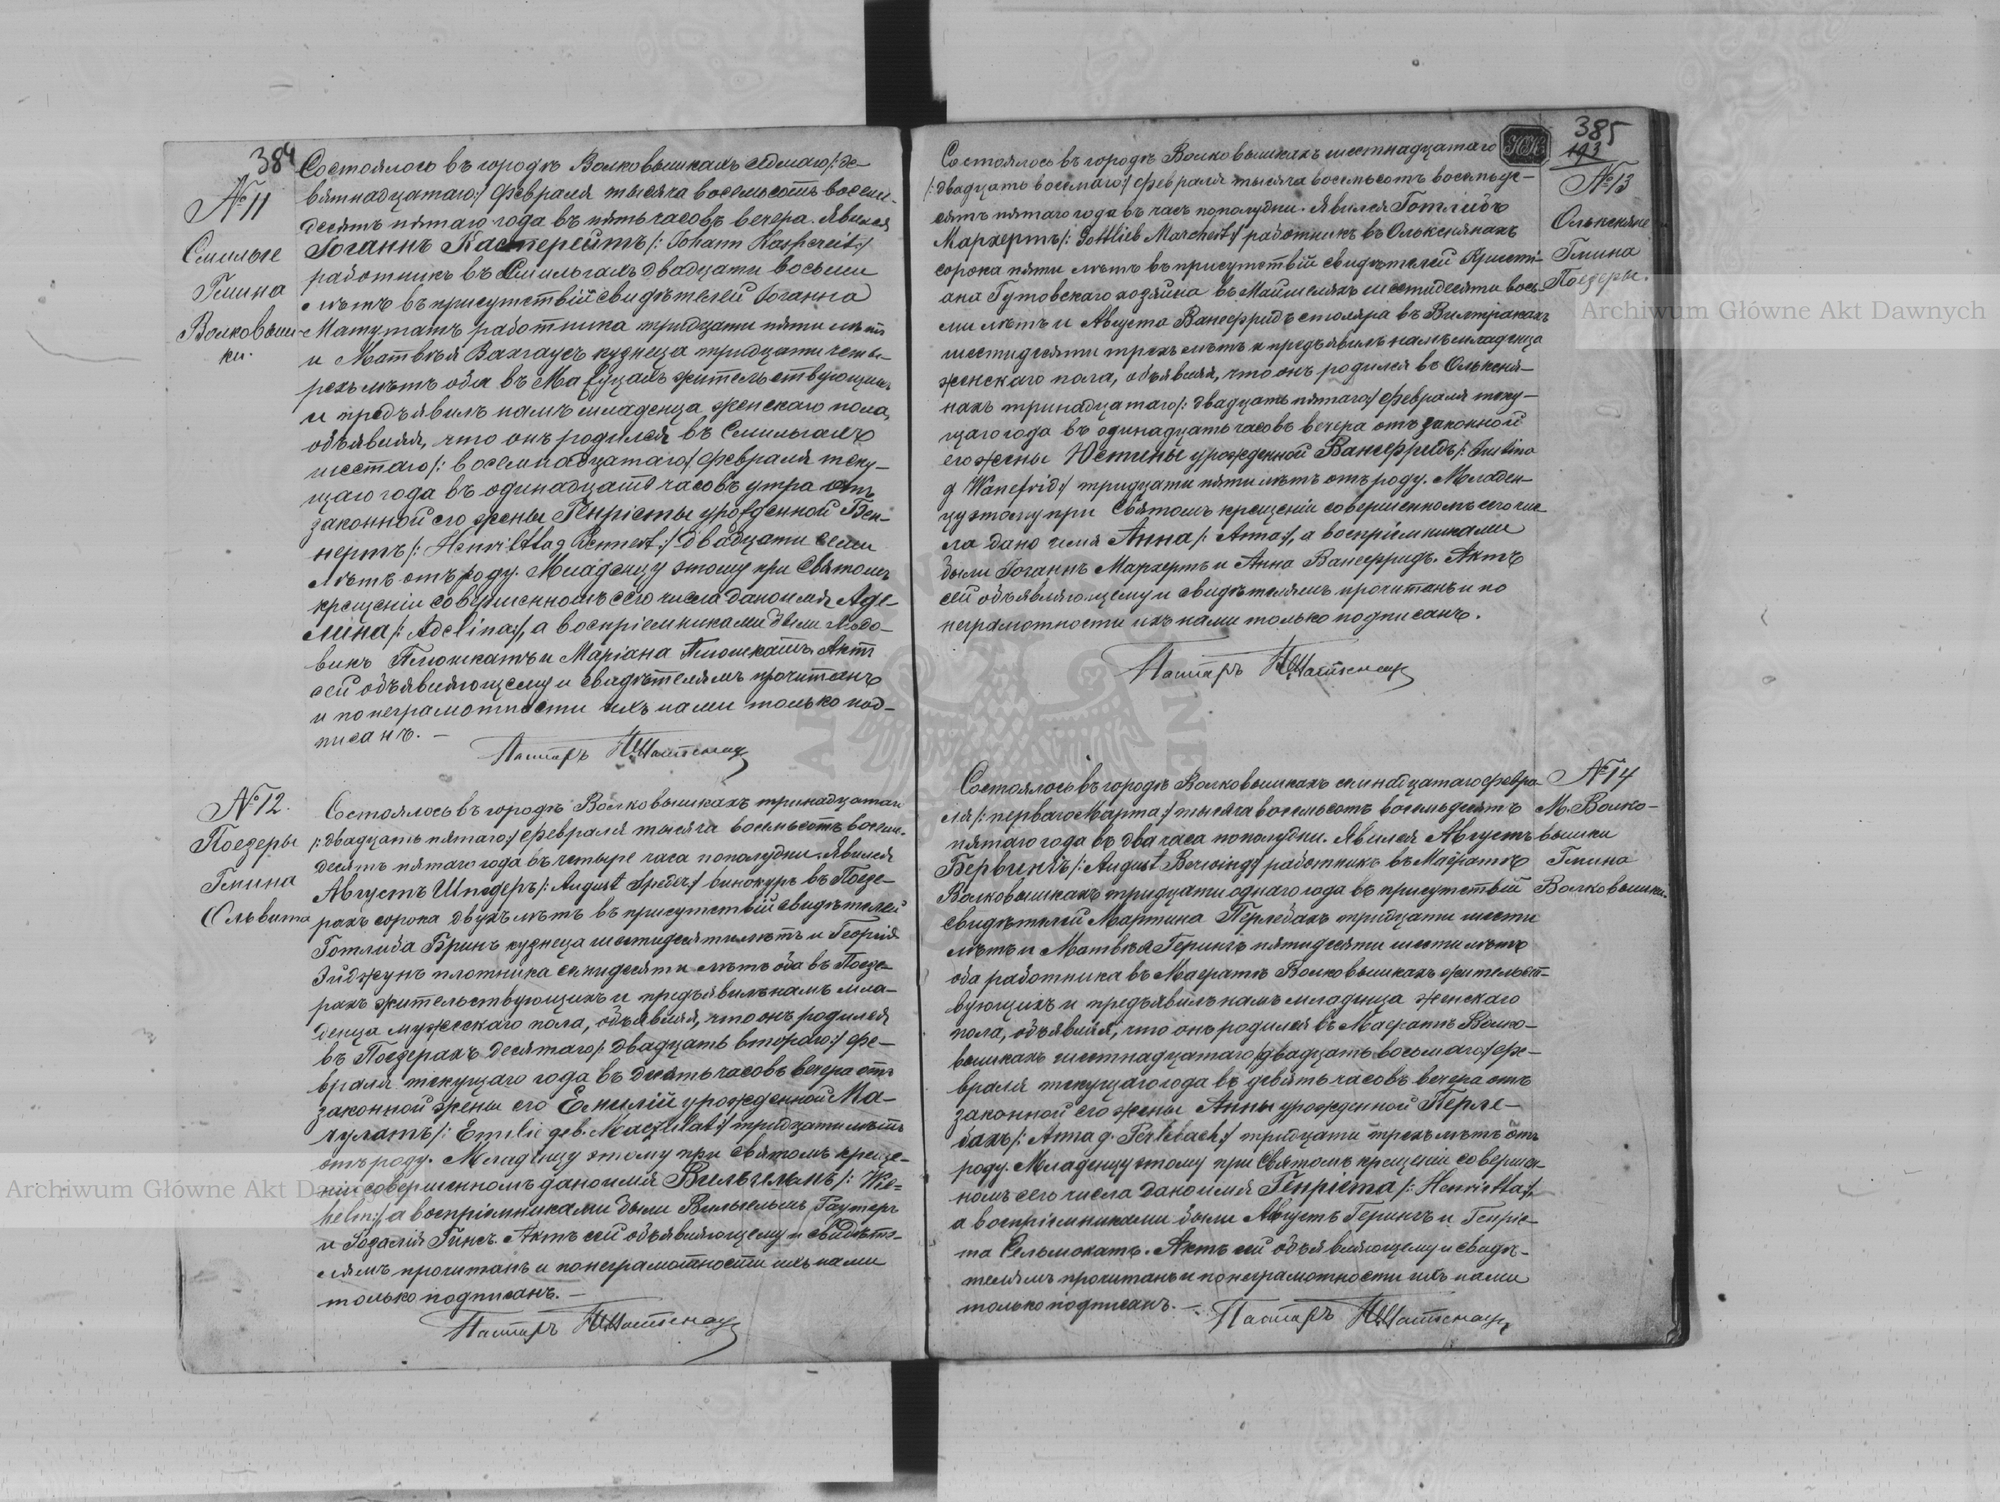 384
№ 11
Смильге
Гмина
Волковыш-
ки.
Состоялось въ городѣ Волковышкахъ седмаго /: де-
вятнадцатаго :/ Февраля тысяча восемьсотъ восемь-
десятъ пятаго года въ пять часовъ вечера. Явился
Іоганнъ Касперейтъ /: Johann Kaspereit :/
работникъ въ Смильгахъ двадцати восьми
лѣтъ въ присутствій свидѣтелей Іоганна
работника тридцати пяти лѣтъ
и Матвѣя кузнеца тридцати четы-
рехъ лѣтъ оба въ жительствующихъ
и предъявилъ намъ младенца женскаго пола,
объявляя, что онъ родился въ Смильгахъ
шестаго /: восемнадцатаго :/ Февраля теку-
щаго года въ одинадцать часовъ утра отъ
законной его жены Генріеты урожденной Бен-
нертъ /: Henrietta g Bennert :/ двадцати семи
лѣтъ отъ роду. Младенцу этому при Святомъ
крещеніи совершенномъ сего числа дано имя Аде-
лина /: Adelina :/, а воспріемниками были Людо-
викъ и Маріана Актъ
сей объявляющему и свидѣтелямъ прочитанъ
и по неграмотности ихъ нами только под-
писанъ. —
Пасторъ
№ 12.
Поезеры
Гмина
Ольвита
Состоялось въ городѣ Волковышкахъ тринадцатаго
/: двадцать пятаго :/ февраля тысяча восемьсотъ восемь-
десятъ пятаго года въ четыре часа пополудни. Явился
Августъ Шпедеръ /: August Speder :/ винокуръ въ Поезе-
рахъ сорока двухъ лѣтъ въ присутствій свидѣтелей
Готлиба Бринъ кузнеца шестидесяти лѣтъ и Георгія
плотника семидесяти лѣтъ оба въ Поезе-
рахъ жительствующихъ и предъявилъ намъ мла-
денца мужескаго пола, объявляя, что онъ родился
въ Поезерахъ десятаго /: двадцать втораго :/ фе-
враля текущаго года въ десять часовъ вечера отъ
законной жены его Емилій урожденной Ма-
/: Emilie geb. :/ тридцати лѣтъ
отъ роду. Младенцу этому при Святомъ креще-
ніи совершенномъ дано имя Вильгельмъ /: Wil-
helm :/ а воспріемниками были Вильгельмъ
и Розалія Гинсъ. Актъ сей объявляющему и свидѣте-
лямъ прочитанъ и по неграмотности ихъ нами
только подписанъ. —
Пасторъ
385
193
№ 13
Ольксняне
Гмина
Поезеры.
Состоялось въ городѣ Волковышкахъ шестнадцатаго
/: двадцать восемаго :/ февраля тысяча восемьсотъ восемьде-
сятъ пятаго года въ часъ пополудни. Явился Готлибъ
Мархертъ /: Gottlieb Marchert :/ работникъ въ Олькснянахъ
сорока пяти лѣтъ въ присутствій свидѣтелей Кристі-
ана Гутовскаго хозяина въ шестидесяти вось-
ми лѣтъ и Августа Ванефридъ столяра въ
шестидесяти трехъ лѣтъ и предъявилъ намъ младенца
женскаго пола, объявляя, что онъ родился въ Олькеня-
нахъ тринадцатаго /: двадцать пятаго :/ февраля теку-
щаго года въ одинадцать часовъ вечера отъ законной
его жены Юстины урожденной Ванефридъ /: Justina
g Wanefrid :/ тридцати пяти лѣтъ отъ роду. Младен-
цу этому при Святомъ крещеніи совершенномъ сего чис-
ла дано имя Анна /: Anna :/, а воспріемниками
были Іоганнъ Мархертъ и Анна Ванефридъ. Актъ
сей объявляющему и свидѣтелямъ прочитанъ и по
неграмотности ихъ нами только подписанъ.
Пасторъ
№ 14
М. Волко-
вышки
Гмина
Волковышки.
Состоялось въ городѣ Волковышкахъ семнадцатаго февра-
ля /: перваго Марта :/ тысяча восемьсотъ восемьдесятъ
пятаго года въ два часа пополудни. Явился Августъ
Бервингъ /: August Berwing :/ работникъ въ Маіратѣ
Волковышкахъ тридцати одного года въ присутствій
свидѣтелей Мартина Перлебахъ тридцати шести
лѣтъ и Матвѣя Герингъ пятидесяти шести лѣтъ
оба работника въ Маіратѣ Волковышкахъ жительст-
вующихъ и предъявилъ намъ младенца женскаго
пола, объявляя, что онъ родился въ Маіратѣ Волко-
вышкахъ шестнадцатаго /: двадцать восьмаго :/ фе-
враля текущаго года въ девять часовъ вечера отъ
законной его жены Анны урожденной Перле-
бахъ /: Anna g. Perlebach :/ тридцати трехъ лѣтъ отъ
роду. Младенцу этому при Святомъ крещеніи совершен-
номъ сего числа дано имя Генріета /: Henrietta :/,
а воспріемниками были Августъ Герингъ и Генріе-
та Сельмокатъ. Актъ сей объявляющему и свидѣ-
телямъ прочитанъ и по неграмотности ихъ нами
только подписанъ. —
Пасторъ
Archiwum Główne Akt Dawnych
Archiwum Główne Akt Dawnych